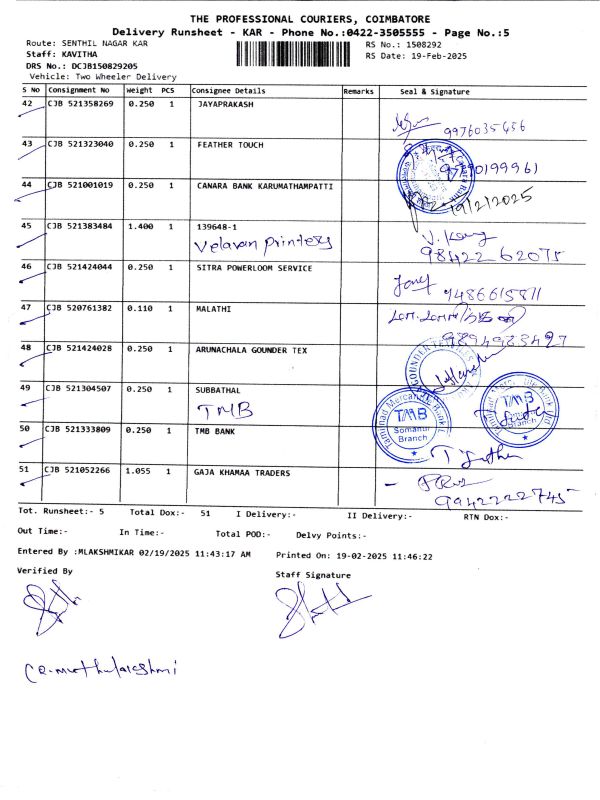 THE PROFESSIONAL COURIERS, COIMBATORE
Delivery Runsheet - KAR - Phone No.:0422-3505555 - Page No.:5
Route: SENTHIL NAGAR KAR
RS No.: 1508292
Staff: KAVITHA
RS Date: 19-Feb-2025
DRS No.: DCJB150829205
Vehicle: Two Wheeler Delivery
S No Consignment No Weight PCS Consignee Details Remarks Seal & Signature
42 CJB 521358269 0.250 1 JAYAPRAKASH
9976035456
43 CJB 521323040 0.250 1 FEATHER TOUCH
9790199961
44 CJB 521001019 0.250 1 CANARA BANK KARUMATHAMPATTI
19/2/2025
45 CJB 521383484 1.400 1 139648-1
Velavan printers
98422 62075
46 CJB 521424044 0.250 1 SITRA POWERLOOM SERVICE
9486615811
47 CJB 520761382 0.110 1 MALATHI
9894983427
48 CJB 521424028 0.250 1 ARUNACHALA GOUNDER TEX
49 CJB 521304507 0.250 1 SUBBATHAL
TMB
Tamilnad Mercantile Bank Ltd
TMB
Somanur
Branch
TMB
Branch
50 CJB 521333809 0.250 1 TMB BANK
51 CJB 521052266 1.055 1 GAJA KHAMAA TRADERS
9942222745
Tot. Runsheet:- 5 Total Dox:- 51 I Delivery:- II Delivery:- RTN Dox:-
Out Time:- In Time:- Total POD:- Delvy Points:-
Entered By :MLAKSHMIKAR 02/19/2025 11:43:17 AM Printed On: 19-02-2025 11:46:22
Verified By
Staff Signature